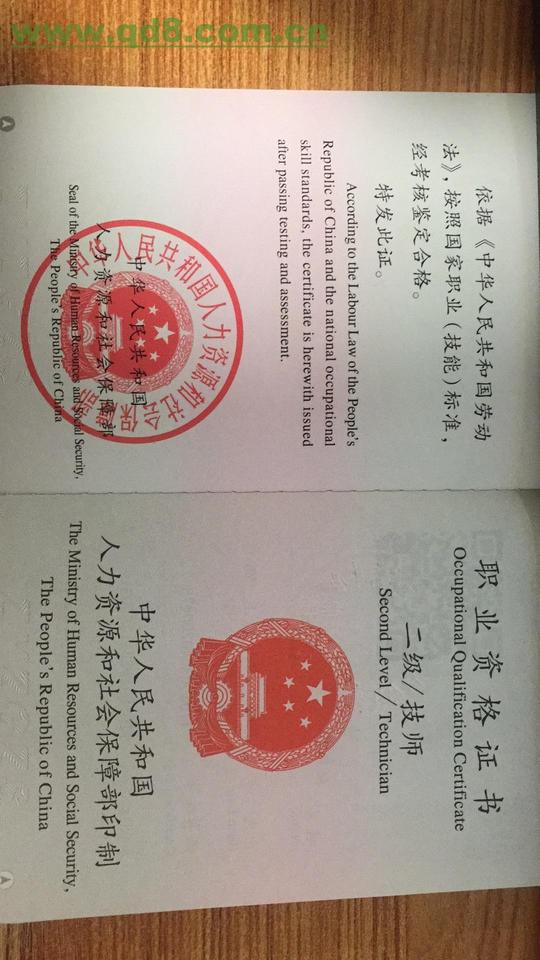 www.qd8.com.cn
依据《中华人民共和国劳动
法》，按照国家职业（技能）标准，
经考核鉴定合格。
特发此证。
According to the Labour Law of the People's
Republic of China and the national occupational
skill standards, the certificate is herewith issued
after passing testing and assessment.
中华人民共和国
人力资源和社会保障部
Seal of the Ministry of Human Resources and Social Security,
The People's Republic of China
中华人民共和国人力资源和社会保障部
职业资格证书
Occupational Qualification Certificate
二级/技师
Second Level/Technician
中华人民共和国
人力资源和社会保障部印制
The Ministry of Human Resources and Social Security,
The People's Republic of China